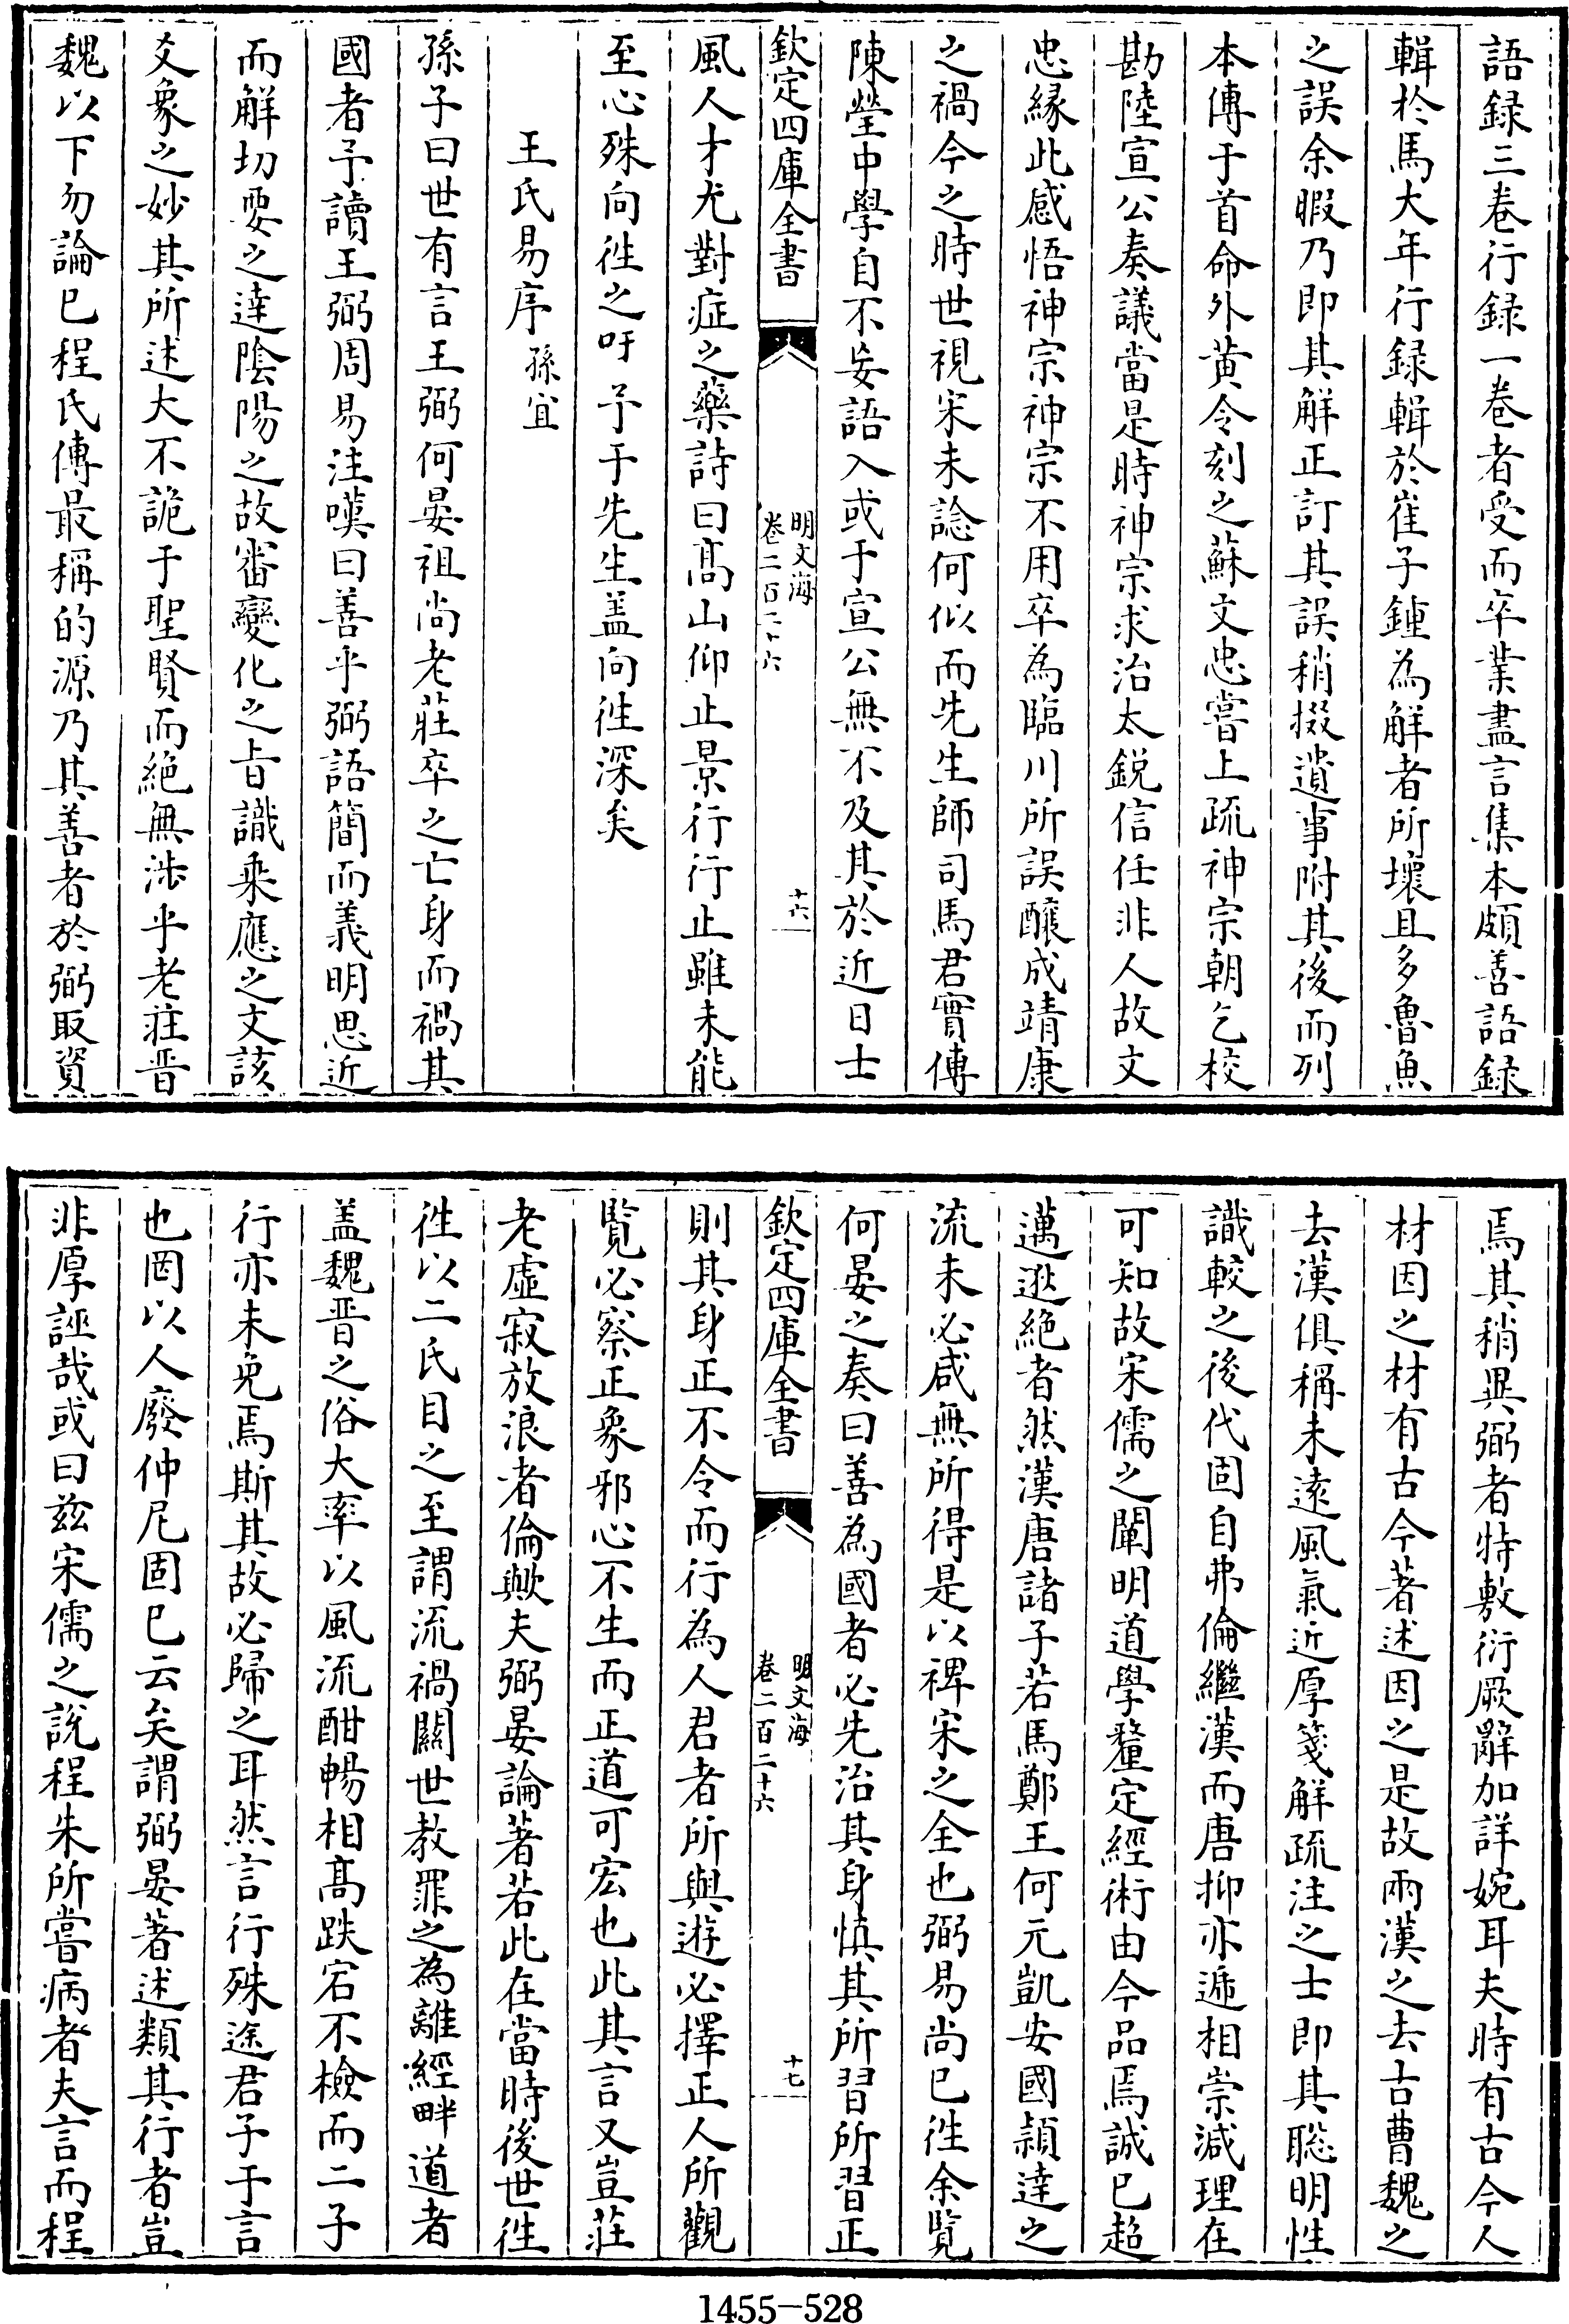 語録三巻行録一巻者受而卒業盡言集本頗善語録
輯扵馬大年行録輯於崔子鍾為解者所壞且多魯魚
之誤余暇乃即其解正訂其誤稍掇遺事附其後而列
本傳于首命外黄令刻之蘇文忠嘗上疏神宗朝乞校
勘陸宣公奏議當是時神宗求治太鋭信任非人故文
忠縁此感悟神宗神宗不用卒為臨川所誤釀成靖康
之禍今之時世視宋未諗何似而先生師司馬君實傳
陳瑩中學自不妄語入或于宣公無不及其於近日士
欽定四庫全書
明文海
卷二百二十六
十六
風人才尤對症之藥詩曰髙山仰止景行行止雖未能
至心殊向徃之吁予于先生盖向徃深矣
王氏易序 孫宜
孫子曰世有言王弼何晏祖尚老莊卒之亡身而禍其
國者予讀王弼周易注嘆曰善乎弼語簡而義明思近
而解切要之達陰陽之故審變化之㫖識乘應之文該
爻象之妙其所述大不詭于聖賢而絶無涉乎老莊晋
魏以下勿論已程氏傳最稱的源乃其善者於弼取資
焉其稍異弼者特敷衍厥辭加詳婉耳夫時有古今人
材因之材有古今著述因之是故兩漢之去古曹魏之
去漢俱稱未逺風氣近厚箋解疏注之士即其聡明性
識較之後代固自弗倫繼漢而唐抑亦遞相崇減理在
可知故宋儒之闡明道學釐定經術由今品焉誠已超
邁逖絶者然漢唐諸子若馬鄭王何元凱安國頴達之
流未必咸無所得是以裨宋之全也弼易尚已徃余覧
何晏之奏曰善為國者必先治其身慎其所習所習正
欽定四庫全書
明文海
卷二百二十六
十七
則其身正不令而行為人君者所與遊必擇正人所觀
覧必察正象邪心不生而正道可宏也此其言又豈莊
老虚寂放浪者倫歟夫弼晏論著若此在當時後世徃
徃以二氏目之至謂流禍闗世教罪之為離經畔道者
盖魏晋之俗大率以風流酣暢相髙跌宕不檢而二子
行亦未免焉斯其故必歸之耳然言行殊途君子于言
也罔以人廢仲尼固已云矣謂弼晏著述類其行者豈
非厚誣哉或曰兹宋儒之説程朱所嘗病者夫言而程
1455-528